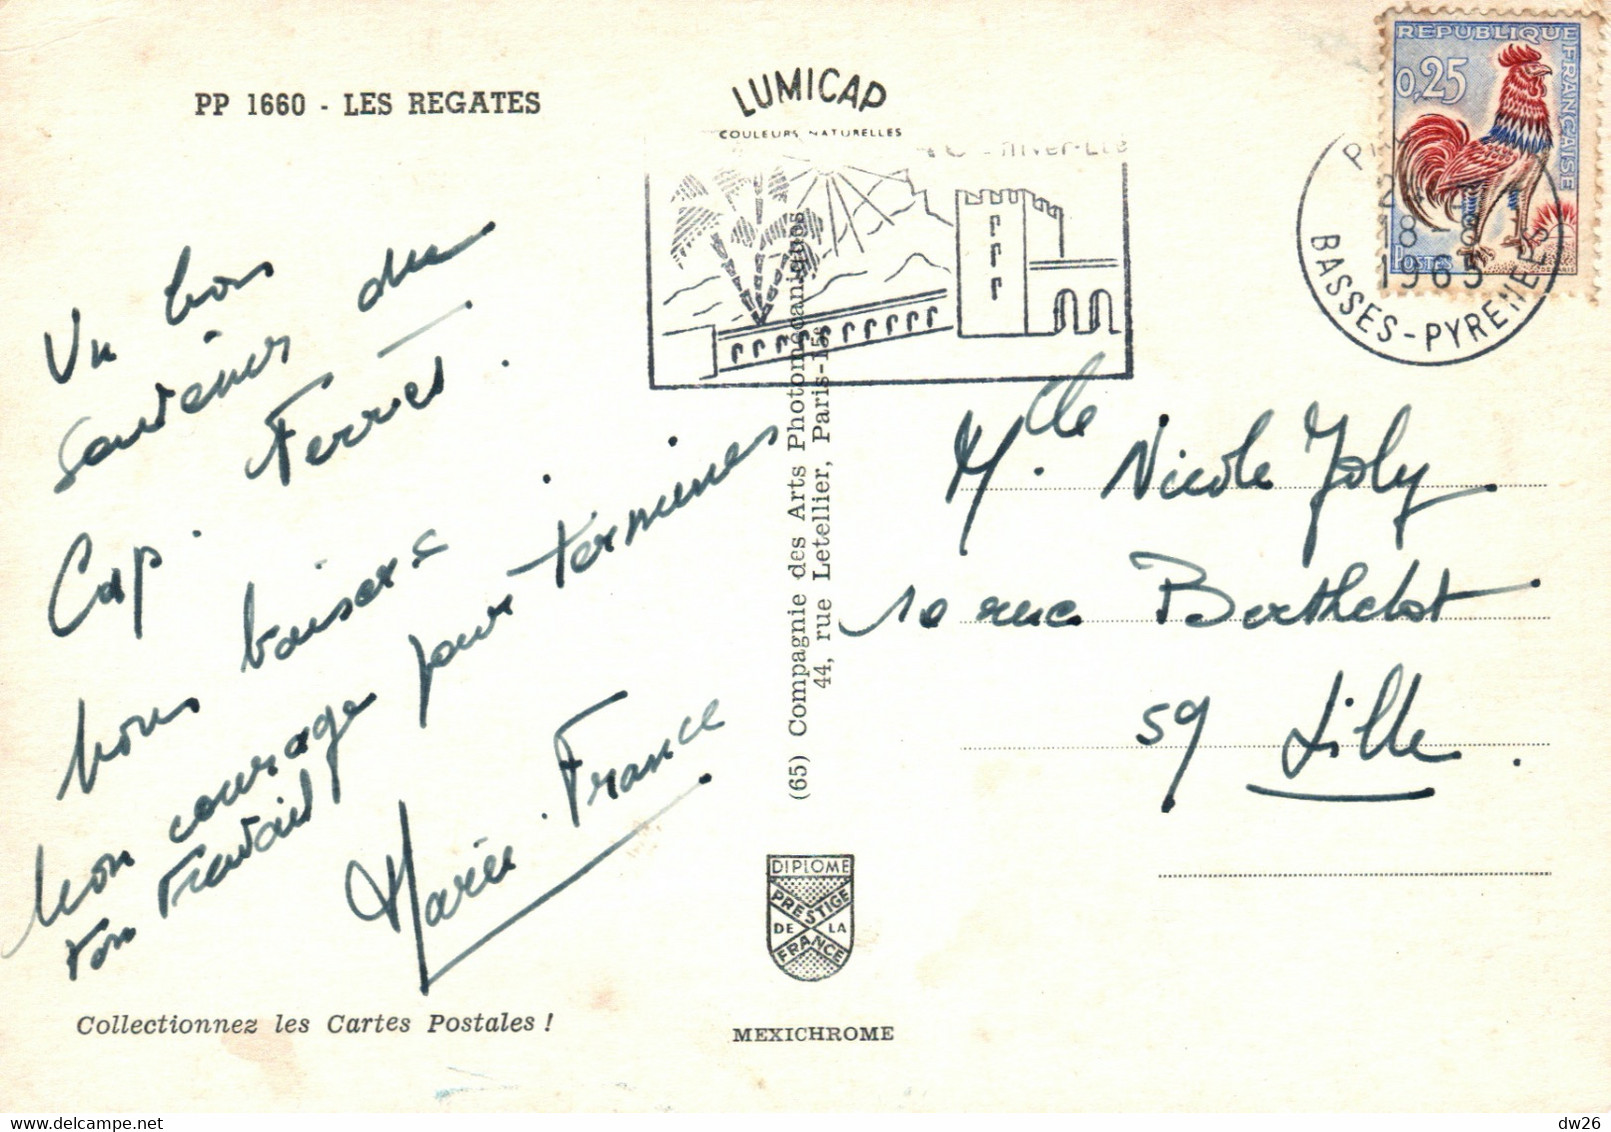 PP 1660 - LES REGATES
Un bon
souvenir du
Cap. Ferret.
bons baisers
bon courage pour terminer
ton travail
Marie-France
Collectionnez les Cartes Postales !
LUMICAP
COULEURS NATURELLES
(65) Compagnie des Arts Photomécaniques
44, rue Letellier, Paris-15e
DIPLOME
PRESTIGE
DE LA
FRANCE
MEXICHROME
REPUBLIQUE FRANÇAISE
0,25
POSTES
18 - 8
1965
BASSES-PYRENEES
Mlle Nicole Joly
10 rue Berthelot
59 Lille.
delcampe.net
dw26